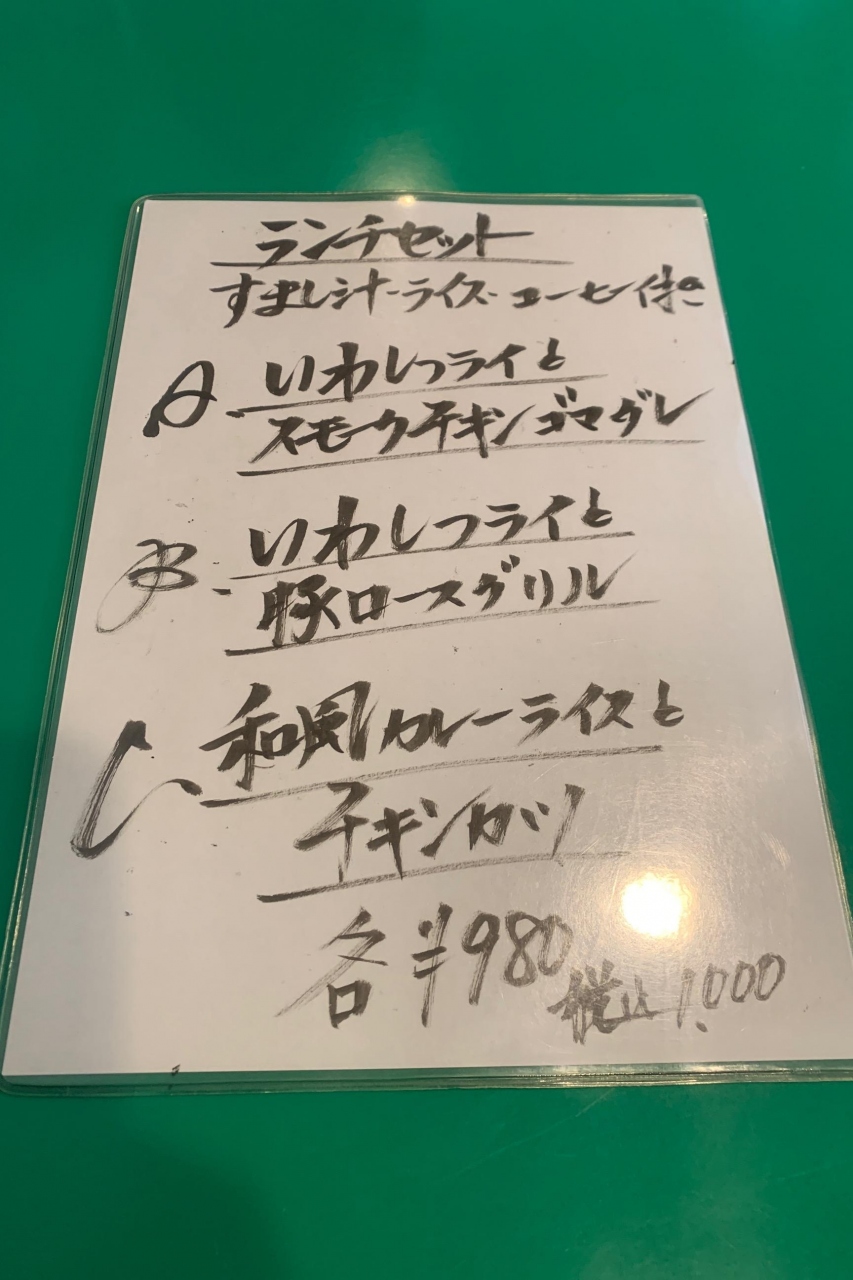 ランチセット
すまし汁・ライス・コーヒー付き
A. いわしフライと
スモークチキンゴマダレ
B. いわしフライと
豚ロースグリル
C. 和風カレーライスと
チキンカツ
各¥980
税込1,000